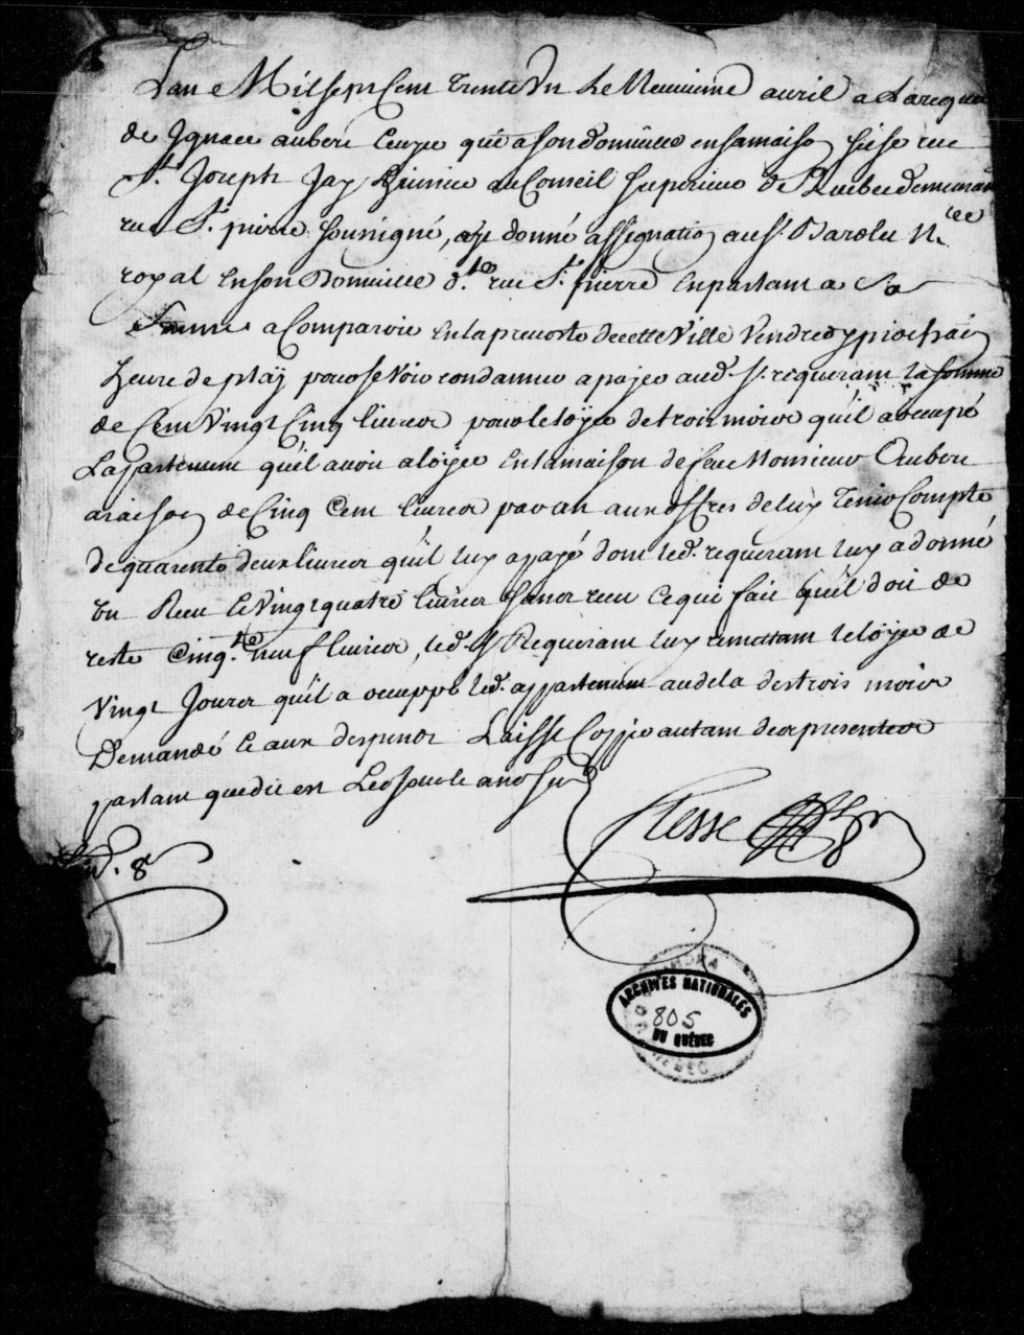 Lan Mil sept Cent trente Un Le Neuvieme avril a Lareque
de Ignace aubert Ecuyer qui a son domicille en sa maison sise rue
St Joseph Jay huissier au Conseil superieur de Quebec demeurant
rue St pierre soussigné, ay donné assignation au sr Barolet Nre
royal en son Domicille d.te rue St pierre En parlant a Sa
femme a Comparoir en la prevosté de cette Ville Vendredy prochain
heure de plaÿ pour se voir condamner a payer aud. sr. requerant la somme
de Cent Vingt Cinq livres pour le loÿer de trois mois qu'il a occupé
Lappartement qu'il avoit a loÿer En la maison de feu Monsieur Aubert
a raison de Cinq Cent livres par an aux offres de luy Tenir Compte
de quarente deux livres qu'il luy a payé dont led. requerant luy a donné
un Recu le Vingt quatre livres sans recu Ce qui fait qu'il doit de
reste Cinq.te neuf livres, led. sr Requerant luy remettant le loÿer de
Vingt Jours qu'il a occuppé led. appartement au dela des trois mois
Demandé le aux depens Laissé Coppie autant des presentes
parlant que dit est Les jour et an dessus
hesse
8
ARCHIVES NATIONALES
805
DU QUÉBEC